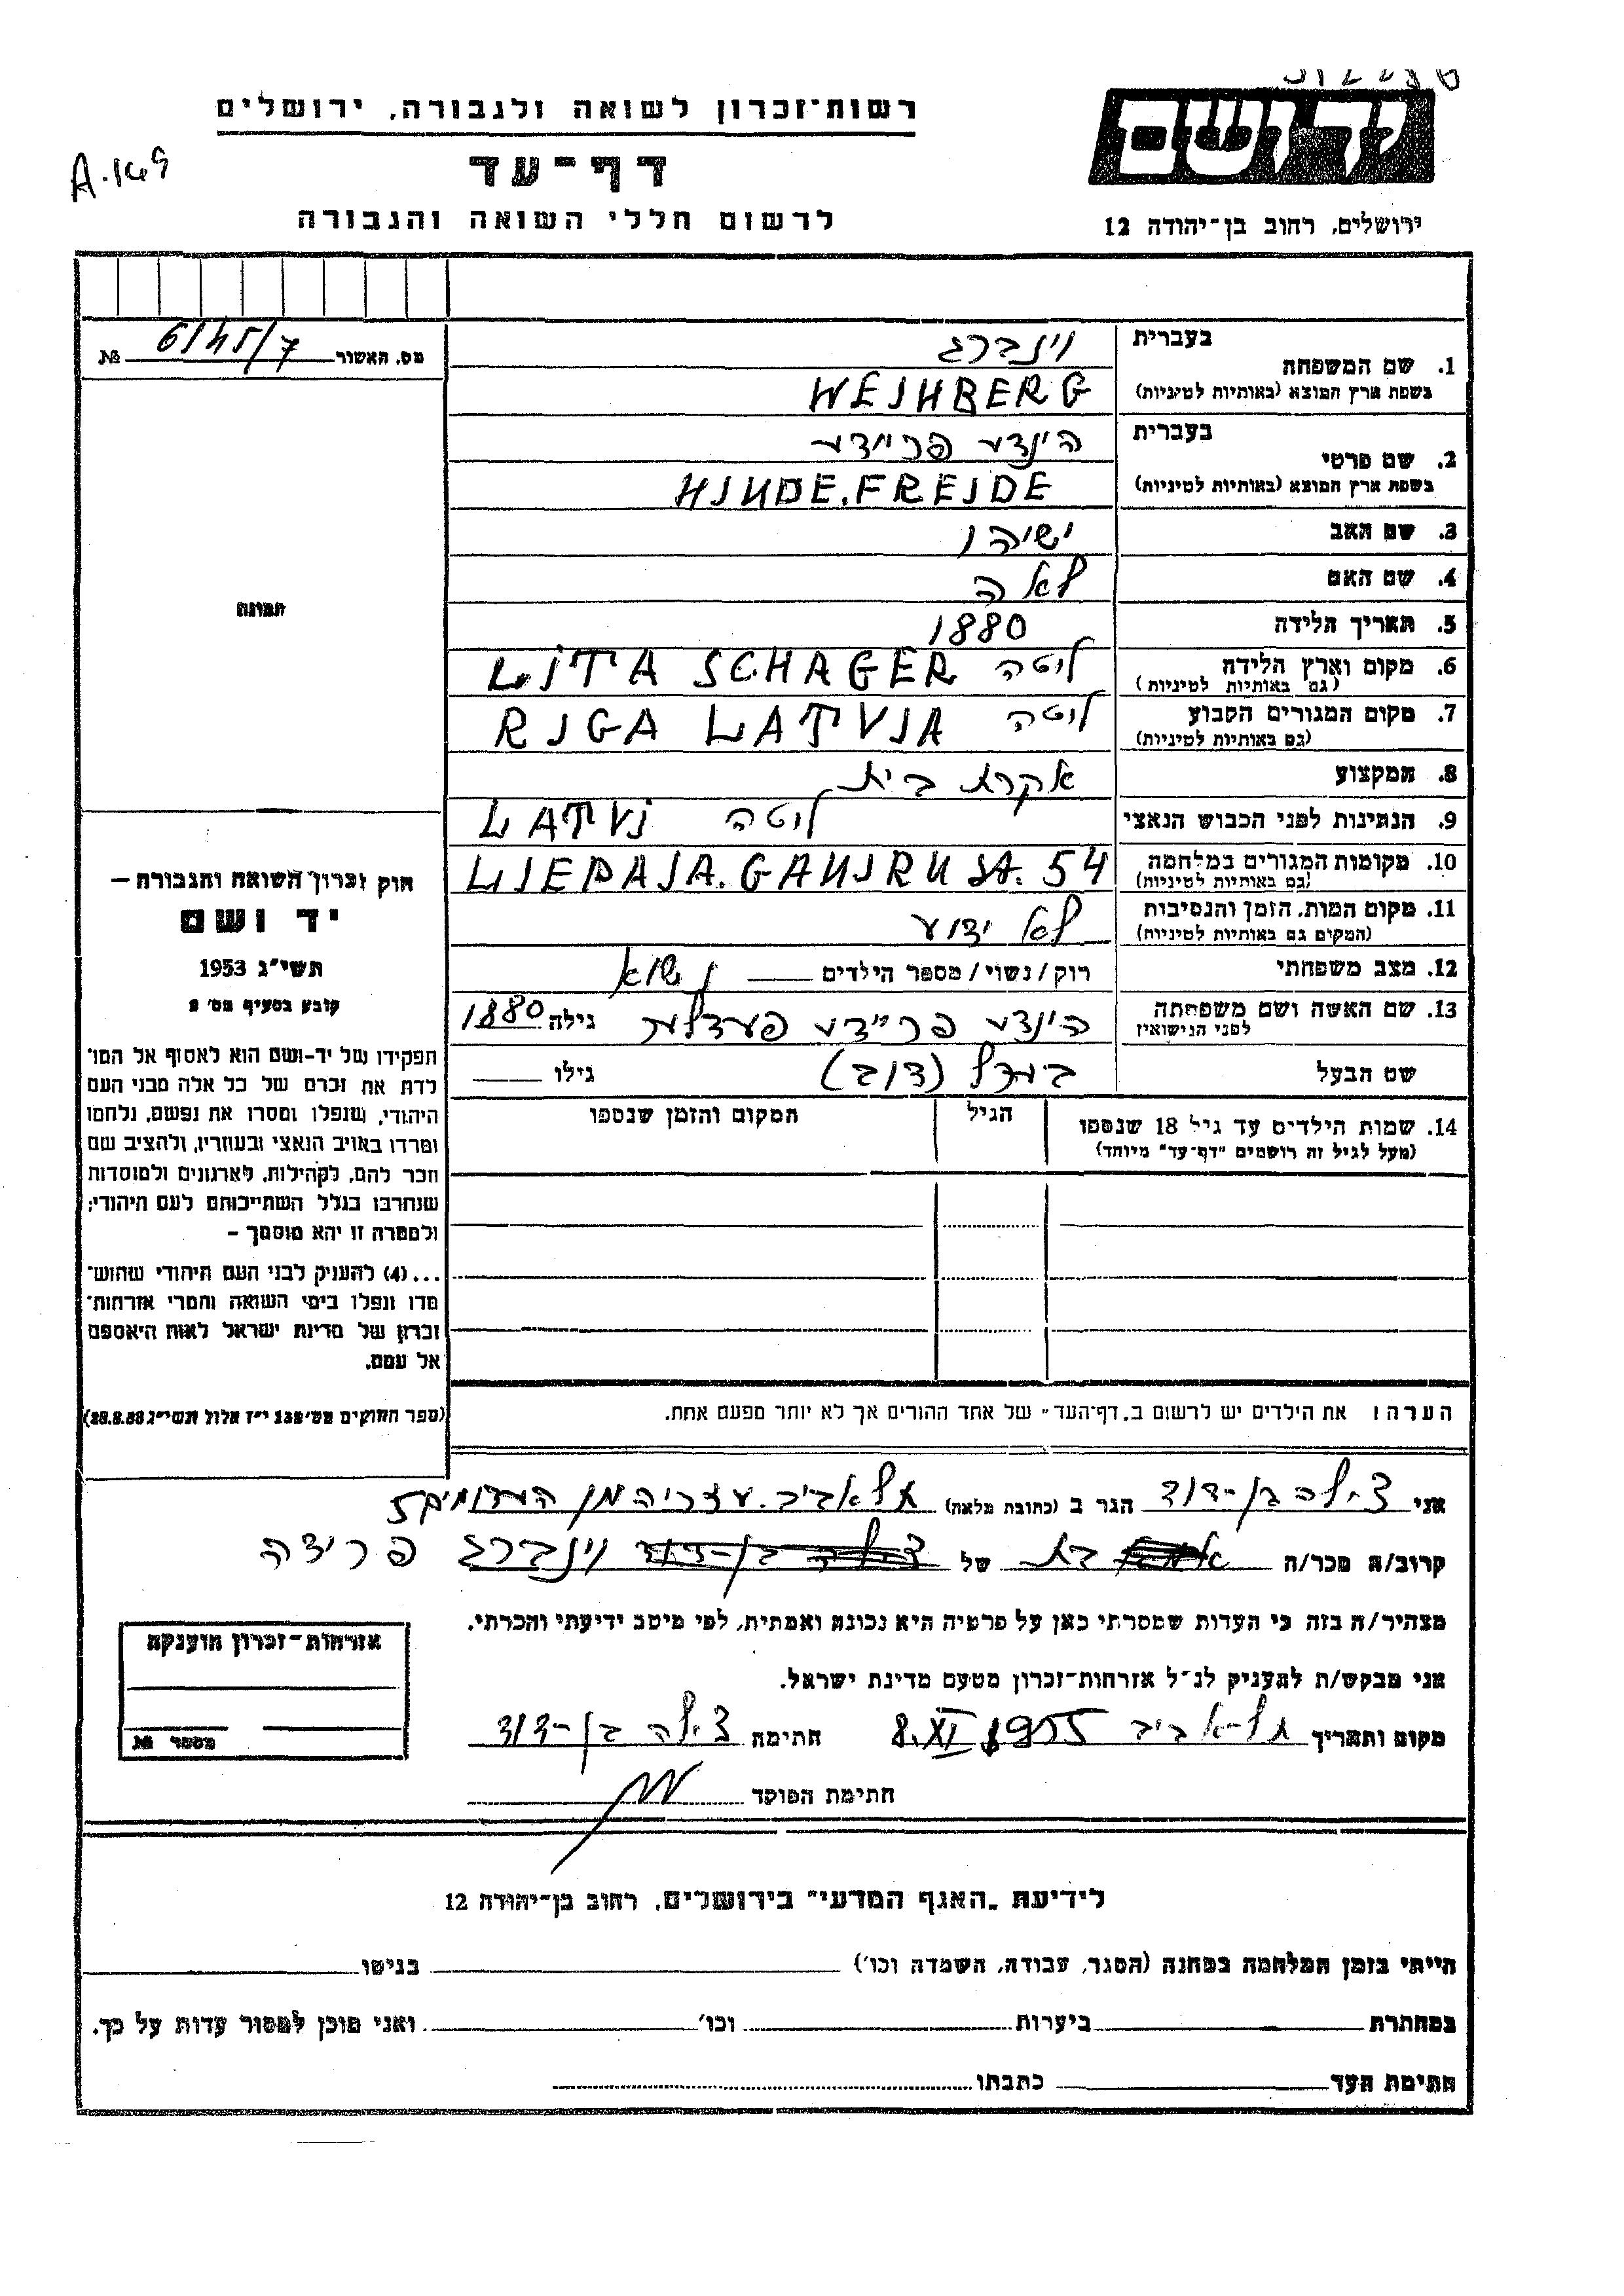 יד ושם
ירושלים, רחוב בן-יהודה 12
רשות-זכרון לשואה ולגבורה, ירושלים
דף-עד
לרשום חללי השואה והגבורה
A.169
מס. האשור 6/45/7 №
1. שם המשפחה בעברית וינברג
בשפת ארץ המוצא (באותיות לטיניות) WEJHBERG
2. שם פרטי בעברית הינדע פריידע
בשפת ארץ המוצא (באותיות לטיניות) HJНDE.FREJDE
3. שם האב ישיהו
4. שם האם לאה
5. תאריך הלידה 1880
6. מקום וארץ הלידה (גם באותיות לטיניות) ליטה LiTA SCHAGER
7. מקום המגורים הקבוע (גם באותיות לטיניות) ליטה RJGA LATVJA
8. המקצוע אקרת בית
9. הנתינות לפני הכבוש הנאצי ליטה LATVj
10. מקומות המגורים במלחמה (גם באותיות לטיניות) LJEPAJA. 54
11. מקום המות, הזמן והנסיבות (המקום גם באותיות לטיניות) לא ידוע
12. מצב משפחתי רוק/נשוי/מספר הילדים נשוא
13. שם האשה ושם משפחתה לפני הנישואין הינדע פריידע גילה 1880
שם הבעל (דוב) גילו
14. שמות הילדים עד גיל 18 שנספו (מעל לגיל זה רושמים "דף-עד" מיוחד)
הגיל
המקום והזמן שנספו
תמונה
חוק זכרון השואה והגבורה —
יד ושם
תשי"ג 1953
קובע בסעיף מס' 2
תפקידו של יד-ושם הוא לאסוף אל המו־
לדת את זכרם של כל אלה מבני העם
היהודי, שנפלו ומסרו את נפשם, נלחמו
ומרדו באויב הנאצי ובעוזריו, ולהציב שם
וזכר להם, לקהילות, לארגונים ולמוסדות
שנחרבו בגלל השתייכותם לעם היהודי;
ולמטרה זו יהא מוסמך –
...(4) להעניק לבני העם היהודי שהוש־
מדו ונפלו בימי השואה והמרי אזרחות־
זכרון של מדינת ישראל לאות היאספם
אל עמם.
(ספר החוקים מס' 132 י"ז אלול תשי"ג 28.8.53)
הערה: את הילדים יש לרשום ב„דף-העד" של אחד ההורים אך לא יותר מפעם אחת.
אני צילה בן-דוד הגר ב (כתובת מלאה) תל אביב
קרוב/ה מכר/ה בת של וינברג פרידה
מצהיר/ה בזה כי העדות שמסרתי כאן על פרטיה היא נכונה ואמתית, לפי מיטב ידיעתי והכרתי.
אני מבקש/ת להעניק לנ"ל אזרחות-זכרון מטעם מדינת ישראל.
מקום ותאריך תל-אביב 8.XI 1955 חתימה צילה בן-דוד
חתימת הפוקד
אזרחות-זכרון הוענקה
מספר №
לידיעת „האגף המדעי" בירושלים, רחוב בן-יהודה 12
הייתי בזמן המלחמה במחנה (הסגר, עבודה, השמדה וכו') בגיטו
במחתרת ביערות וכו' ואני מוכן למסור עדות על כך.
חתימת העד כתבתו